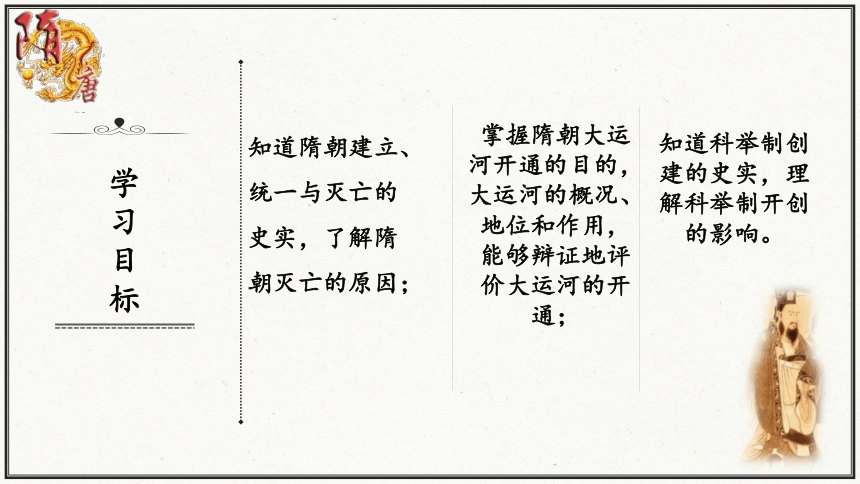 隋
唐
学
习
目
标
知道隋朝建立、
统一与灭亡的
史实，了解隋
朝灭亡的原因；
掌握隋朝大运
河开通的目的，
大运河的概况、
地位和作用，
能够辩证地评
价大运河的开
通；
知道科举制创
建的史实，理
解科举制开创
的影响。